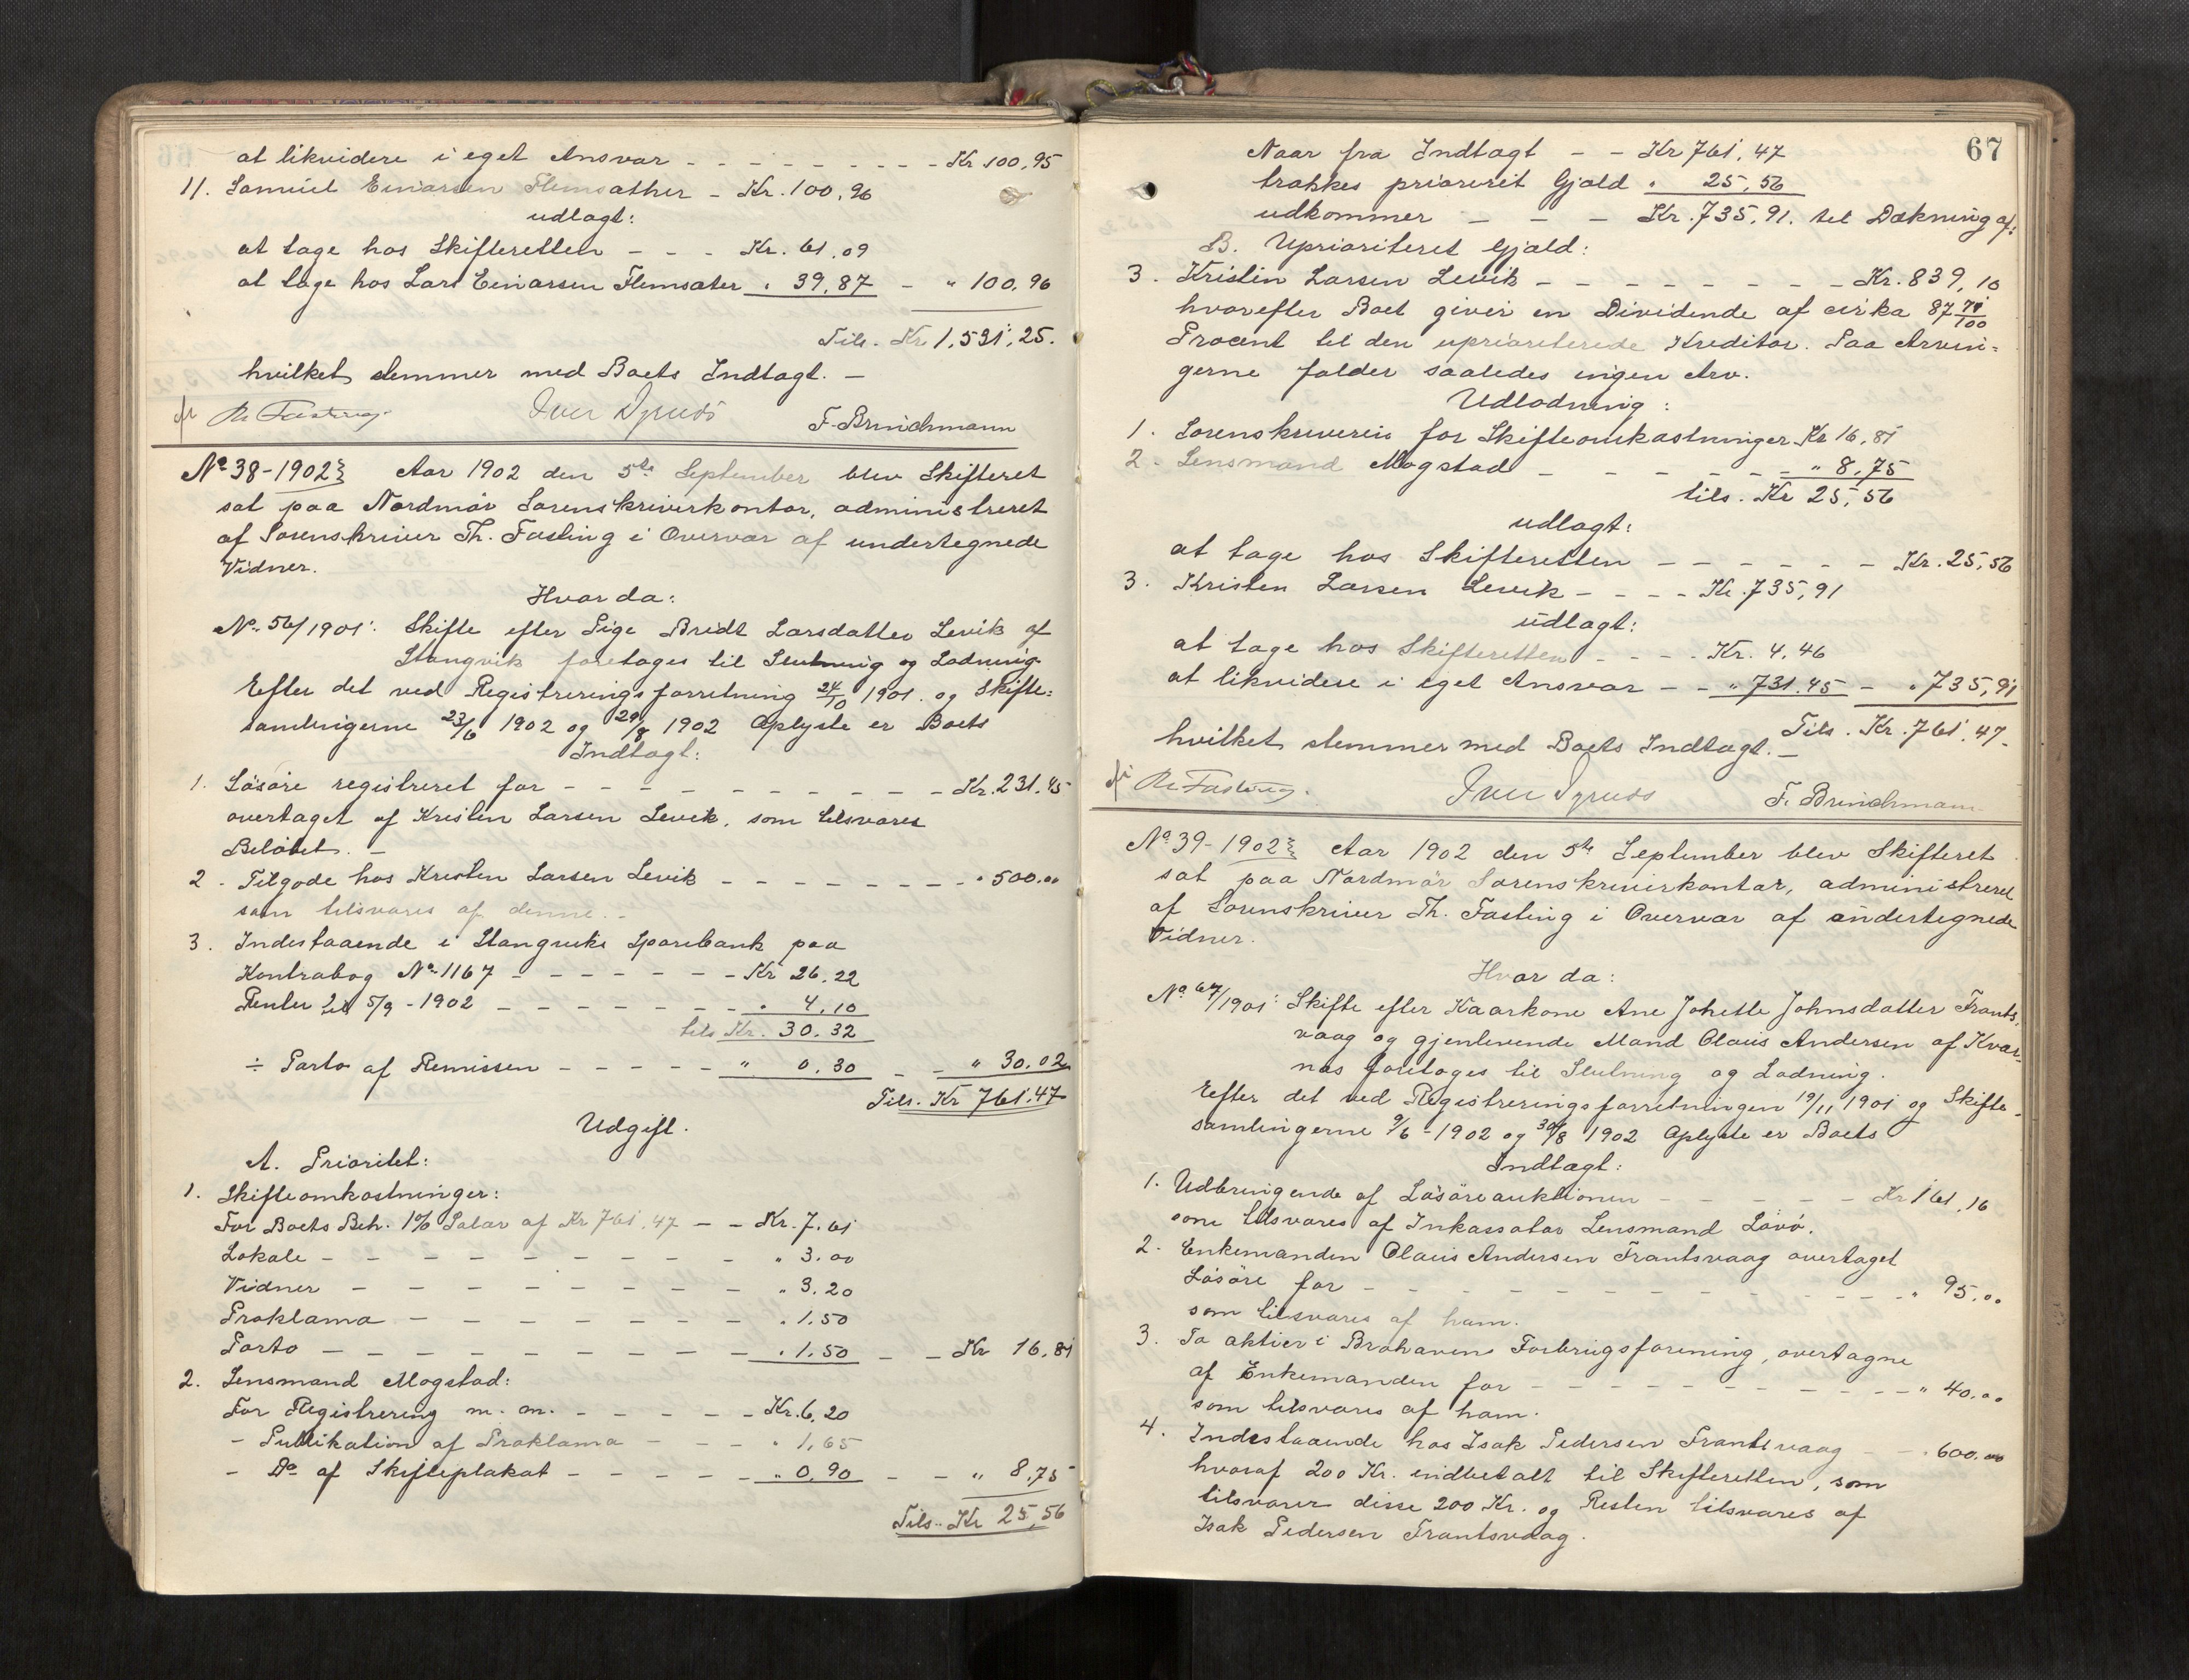 at likvidere i eget Ansvar - - - - - - - - Kr 100,95
11. Samuel Einarsen Flemsæther - Kr. 100,96
udlagt:
at tage hos Skifteretten - - - Kr. 61,09
at tage hos Lars Einarsen Flemsæter " 39,87 - " 100,96
Tils. Kr 1,531,25.
hvilket stemmer med Boets Indtægt. -
Th. Fasting. Iver F. Brinchmann
No 38-1902 Aar 1902 den 5te September blev Skifteret
sat paa Nordmør Sorenskriverkontor, administreret
af Sorenskriver Th. Fasting i Overvær af undertegnede
Vidner.
Hvor da:
No. 56/1901: Skifte efter Pige Bredt Larsdatter Levik af
Stangvik foretages til Slutning og Lodning.
Efter det ved Registreringsforretning 24/10 1901. og Skifte=
samlingerne 23/6 1902 og 29/8 1902 Oplyste er Boets
Indtægt:
1. Løsøre registreret for - - - - - - - - - Kr. 231.45
overtaget af Kristen Larsen Levik, som tilsvarer
Beløbet. -
2. Tilgode hos Kristen Larsen Levik - - - - - - - " 500.00
som tilsvares af denne. -
3. Indestaaende i Stangviks Sparebank paa
Kontrabog No 1167 - - - - - - - Kr 26,22
Renter til 5/9 - 1902 - - - - - - - " 4,10
tils Kr. 30.32
÷ Porto af Remissen - - - - - " 0,30 - - " 30.02
Tils. Kr 761.47
Udgift.
A. Prioritet:
1. Skifteomkostninger:
For Boets Beh. 1% Salær af Kr 761,47 - - Kr. 7.61
Lokale - - - - - - - - - " 3.00
Vidner - - - - - - - - " 3.20
Proklama - - - - - - - " 1.50
Porto - - - - - - - - - " 1.50 - - Kr 16,81
2. Lensmand Mogstad:
For Registrering m. m. - - - - - Kr. 6,20
- Publikation af Proklama - - - " 1,65
- Do af Skifteplakat - - - - - " 0,90 - - " 8.75
Tils. Kr 25,56
67
Naar fra Indtægt - - Kr 761,47
trækkes prioriteret Gjæld " 25,56
udkommer - - - Kr. 735,91. til Dækning af:
B. Uprioriteret Gjæld:
3. Kristen Larsen Levik - - - - - - - - Kr. 839,10
hvorefter Boet giver en Dividende af cirka 87 71/100
Procent til den uprioriterede Kreditor. Paa Arvin=
gerne falder saaledes ingen Arv.
Udlodning:
1. Sorenskriveren for Skifteomkostninger Kr 16,81
2. Lensmand Mogstad - - - - - - " 8,75
tils. Kr 25,56
udlagt:
at tage hos Skifteretten - - - - - - Kr. 25,56
3. Kristen Larsen Levik - - - - Kr. 735,91
udlagt:
at tage hos Skifteretten - - - - Kr. 4.46
at likvidere i eget Ansvar - - " 731.45 - " 735,91
Tils. Kr. 761.47.
hvilket stemmer med Boets Indtægt. -
Th. Fasting. Iver F. Brinchmann
No 39-1902 Aar 1902 den 5te September blev Skifteret
sat paa Nordmør Sorenskriverkontor, administreret
af Sorenskriver Th. Fasting i Overvær af undertegnede
Vidner.
Hvor da:
No 67/1901: Skifte efter Kaarkone Ane Johette Johnsdatter Frants,
vaag og gjenlevende Mand Olaus Andersen af Kvær-
næs foretages til Slutning og Lodning.
Efter det ved Registreringsforretningen 19/11 1901 og Skifte-
samlingerne 9/6 - 1902 og 30/8 1902 Oplyste er Boets
Indtægt:
1. Udbringende af Løsøreauktionen - - - - - Kr 161,16
som tilsvares af Inkassator Lensmand Løvø.
2. Enkemanden Olaus Andersen Frantsvaag overtaget
Løsøre for - - - - - - - - - - - " 95.00
som tilsvares af ham.
3. To aktier i Brohavens Forbrugsforening, overtagne
af Enkemanden for - - - - - - - - - - - " 40.00
som tilsvares af ham.
4. Indestaaende hos Isak Pedersen Frantsvaag - - " 600.00
hvoraf 200 Kr. indbetalt til Skifteretten, som
tilsvarer disse 200 Kr. og Resten tilsvares af
Isak Pedersen Frantsvaag.